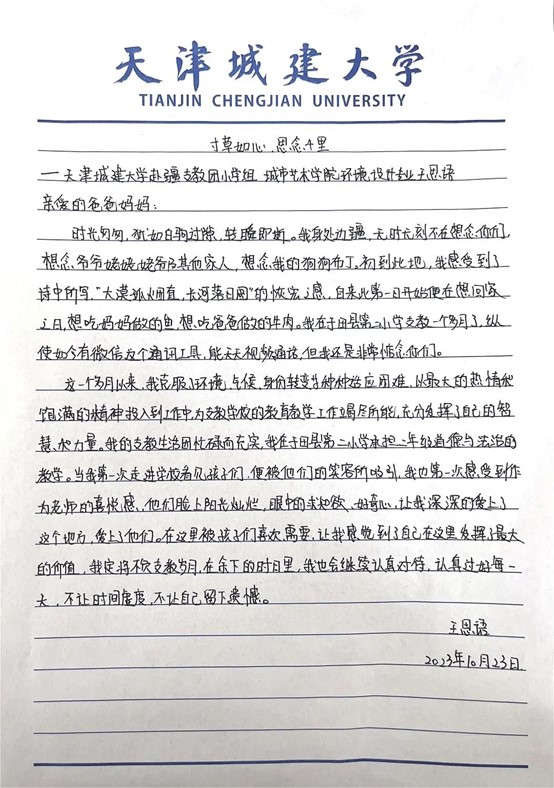 天津城建大学
TIANJIN CHENGJIAN UNIVERSITY
寸草如心,思念千里
——天津城建大学赴疆支教团小学组 城市艺术学院环境设计专业 王恩语
亲爱的爸爸妈妈:
时光匆匆,犹如白驹过隙,转瞬即逝。我身处力疆,无时无刻不在想念你们,
想念爷爷姥姥姥爷及其他家人,想念我的狗狗布丁。初到此地,我感受到了
诗中所写,“大漠孤烟直,长河落日圆”的恢宏之感,自来此第一日开始便在想回家
之日,想吃妈妈做的鱼,想吃爸爸做的牛肉。我在于田县第二小学支教一个多月了,纵
使如今有微信及个通讯工具,能天天视频通话,但我还是非常惦念你们。
这一个多月以来,我克服了环境、气候、身份转变等种种适应困难,以最大的热情和
饱满的精神投入到工作中,为支教学校的教育教学工作竭尽所能,充分发挥了自己的智
慧和力量。我的支教生活团忙碌而充实,我在于田县第二小学承担二年级道德与法治的
教学。当我第一次走进学校看见孩子们,便被他们的笑容所吸引,我也第一次感受到作
为老师的喜悦感,他们脸上阳光灿烂,眼中的求知欲、好奇心,让我深深的爱上了
这个地方,爱上了他们。在这里被孩子们喜欢、需要,让我感觉到了自己在这里发挥了最大
的价值,我定将不负支教岁月,在余下的时日里,我也会继续认真对待,认真过好每一
天,不让时间虚度,不让自己留下遗憾。
王恩语
2023年10月23日